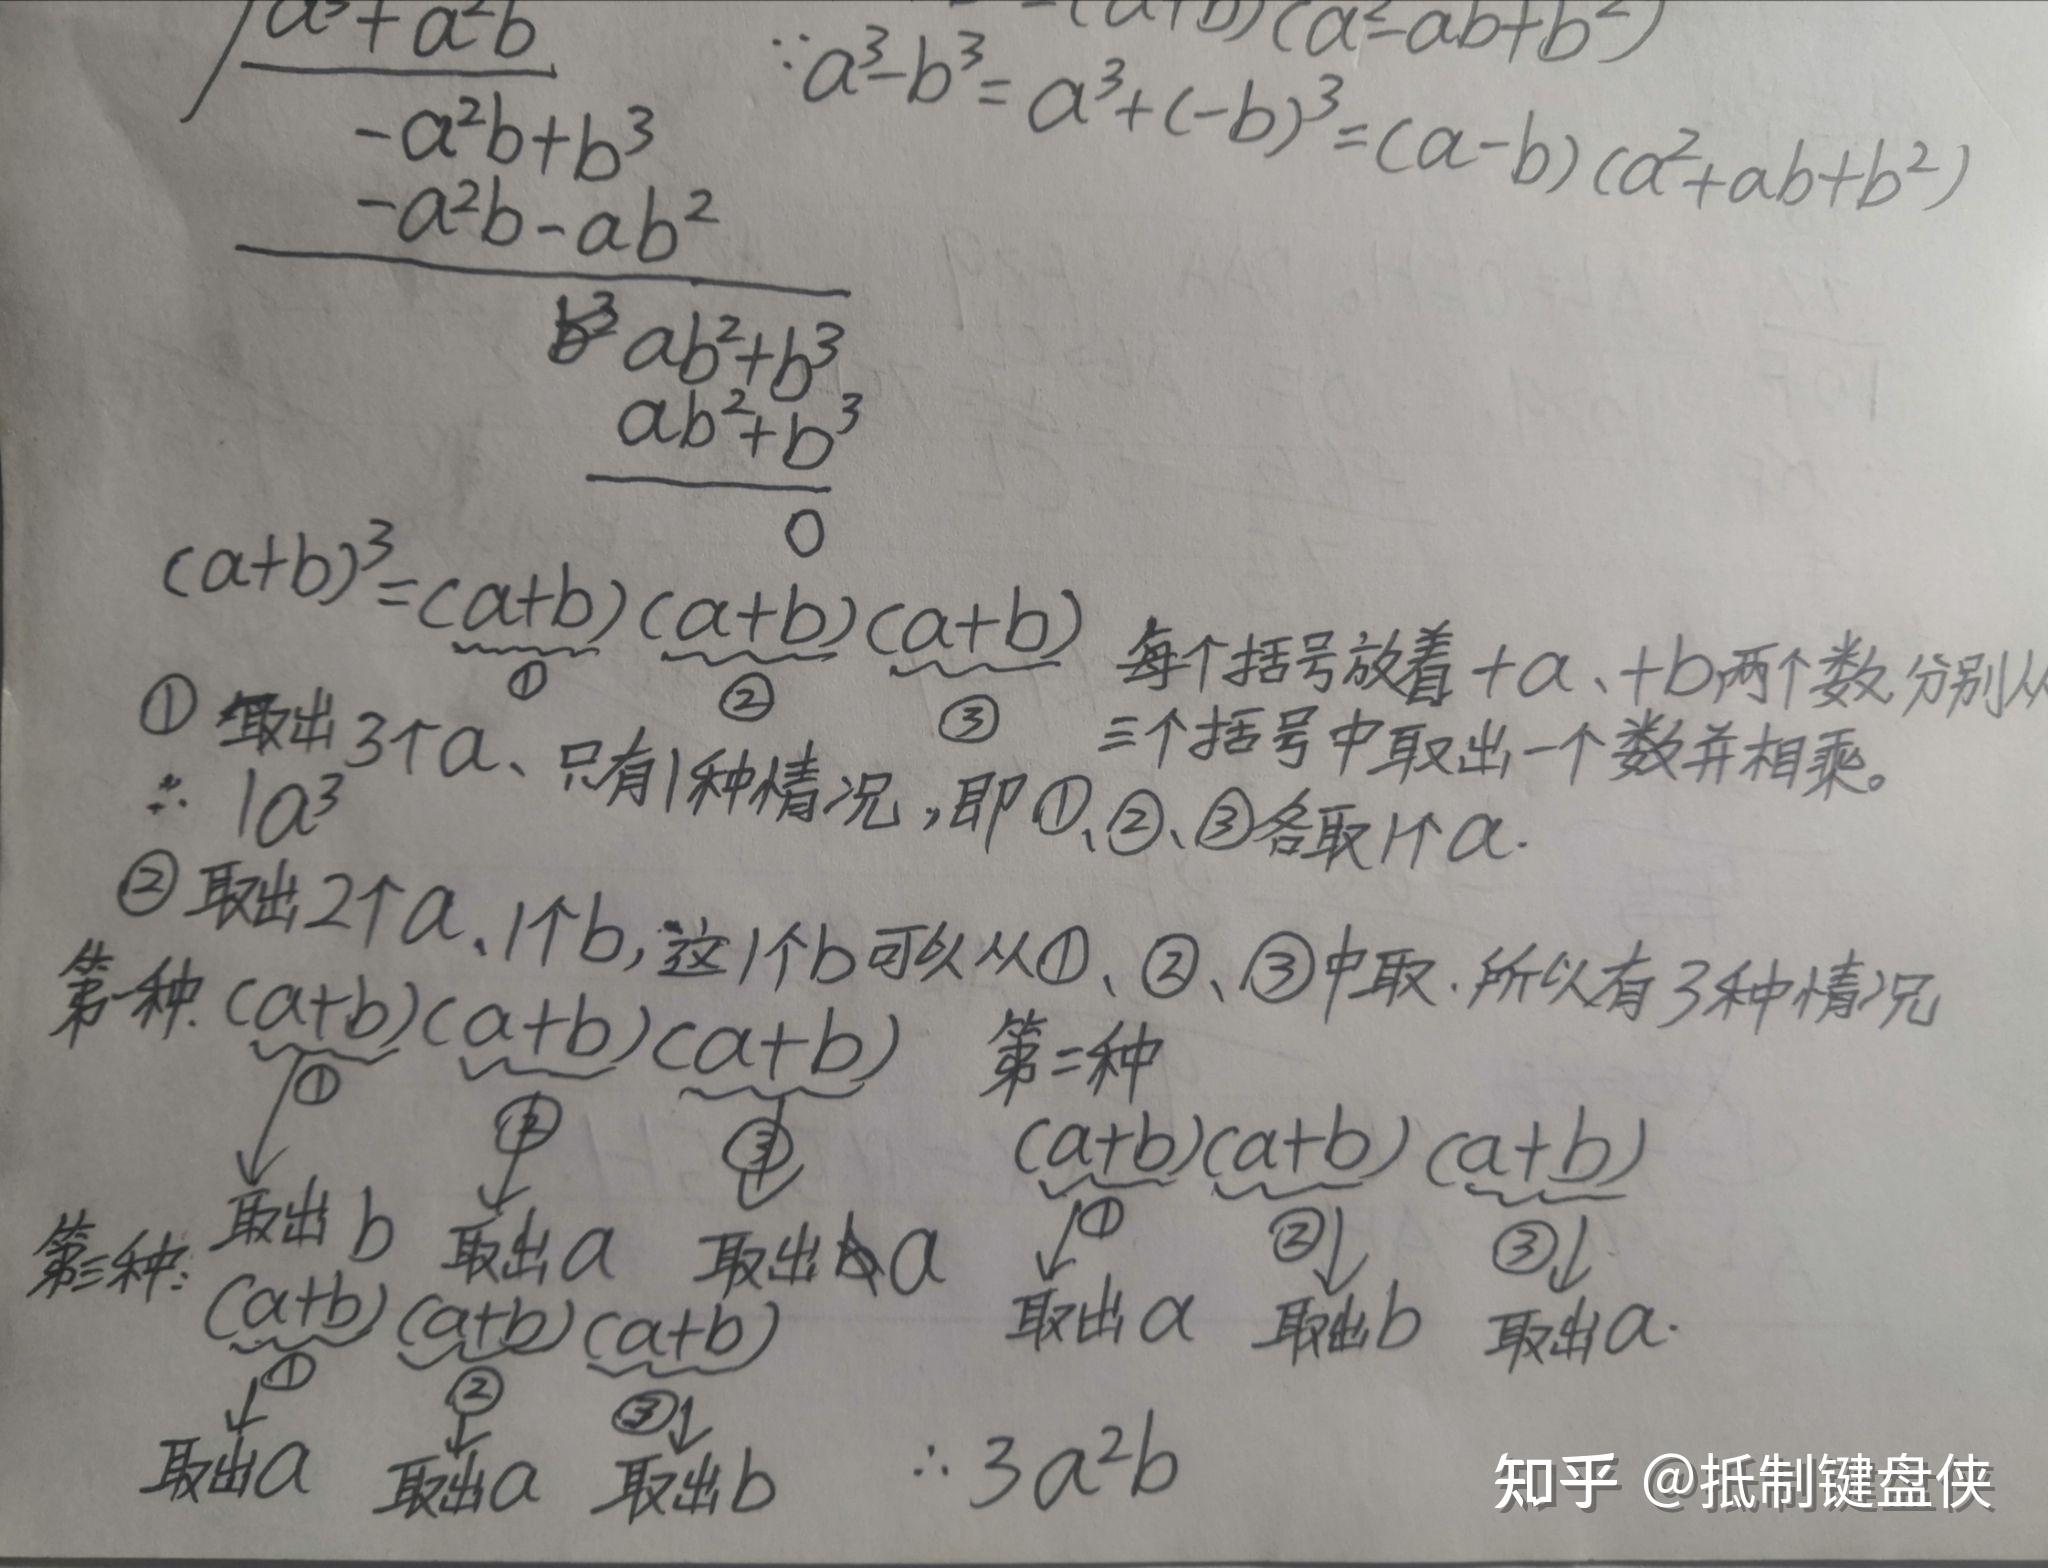 a³+a²b
-a²b+b³
-a²b-ab²
ab²+b³
ab²+b³
0
=(a+b)(a²-ab+b²)
∵a³-b³=a³+(-b)³=(a-b)(a²+ab+b²)
(a+b)³=(a+b)(a+b)(a+b)
① ② ③
每个括号放着+a、+b两个数分别从
三个括号中取出一个数并相乘。
① 取出3个a、只有1种情况,即①、②、③各取1个a.
∴ 1a³
② 取出2个a、1个b,这1个b可以从①、②、③中取.所以有3种情况
第一种.(a+b)(a+b)(a+b)
① ② ③
取出b 取出a 取出a
第二种
(a+b)(a+b)(a+b)
① ② ③
取出a 取出b 取出a.
第三种:
(a+b)(a+b)(a+b)
① ② ③
取出a 取出a 取出b
∴3a²b
知乎 @抵制键盘侠